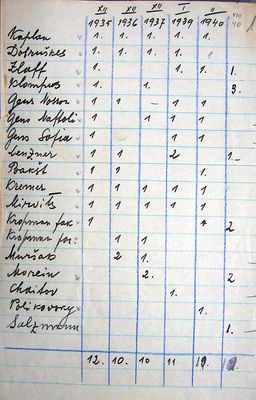 XII XII XII I II VIII
1935 1936 1937 1939 1940 40
Kaplan 1. 1. 1. 1.
Dotruškes 1. 1. 1. 1. 1
Zlaff 1. 1. 1. 1.
Klompus 1. 1. 3.
Gens Nosson 1 1 – 1 1
Gens Naftoli 1 1 1
Gens Sofia 1 1
Lenzner 1 1 2 1.–
Bakst 1 1 1.
Kremer 1 1 1 1 1
Mirvits 1 1 1 1 1
Kropman Jak. 1 2
Kropman 1 1
Muršak 2 1.
Morein 2. 2
Chaitov 1.
Polikovsky 1.
Salzmann 1.
12. 10. 10 11